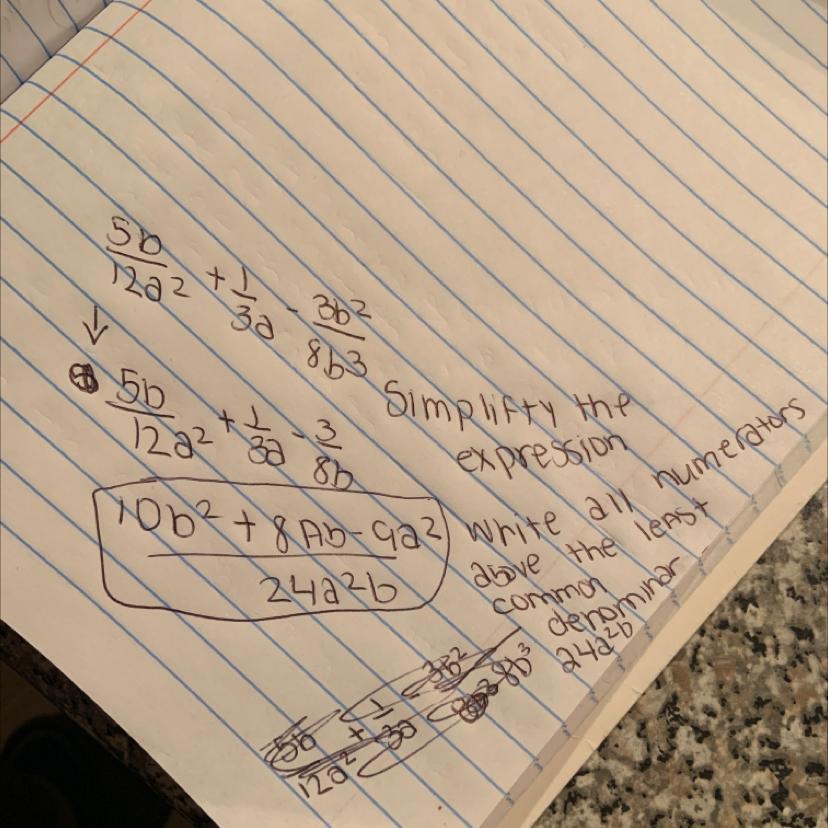 5b/12a² + 1/3a - 3b²/8b3
↓
5b/12a² + 1/3a - 3/8b
Simplifty the
expression
10b² + 8Ab - 9a²/24a²b
write all numerators
above the least
common
denominar
24a²b
5b/12a² + 1/3a 3b²/8b³